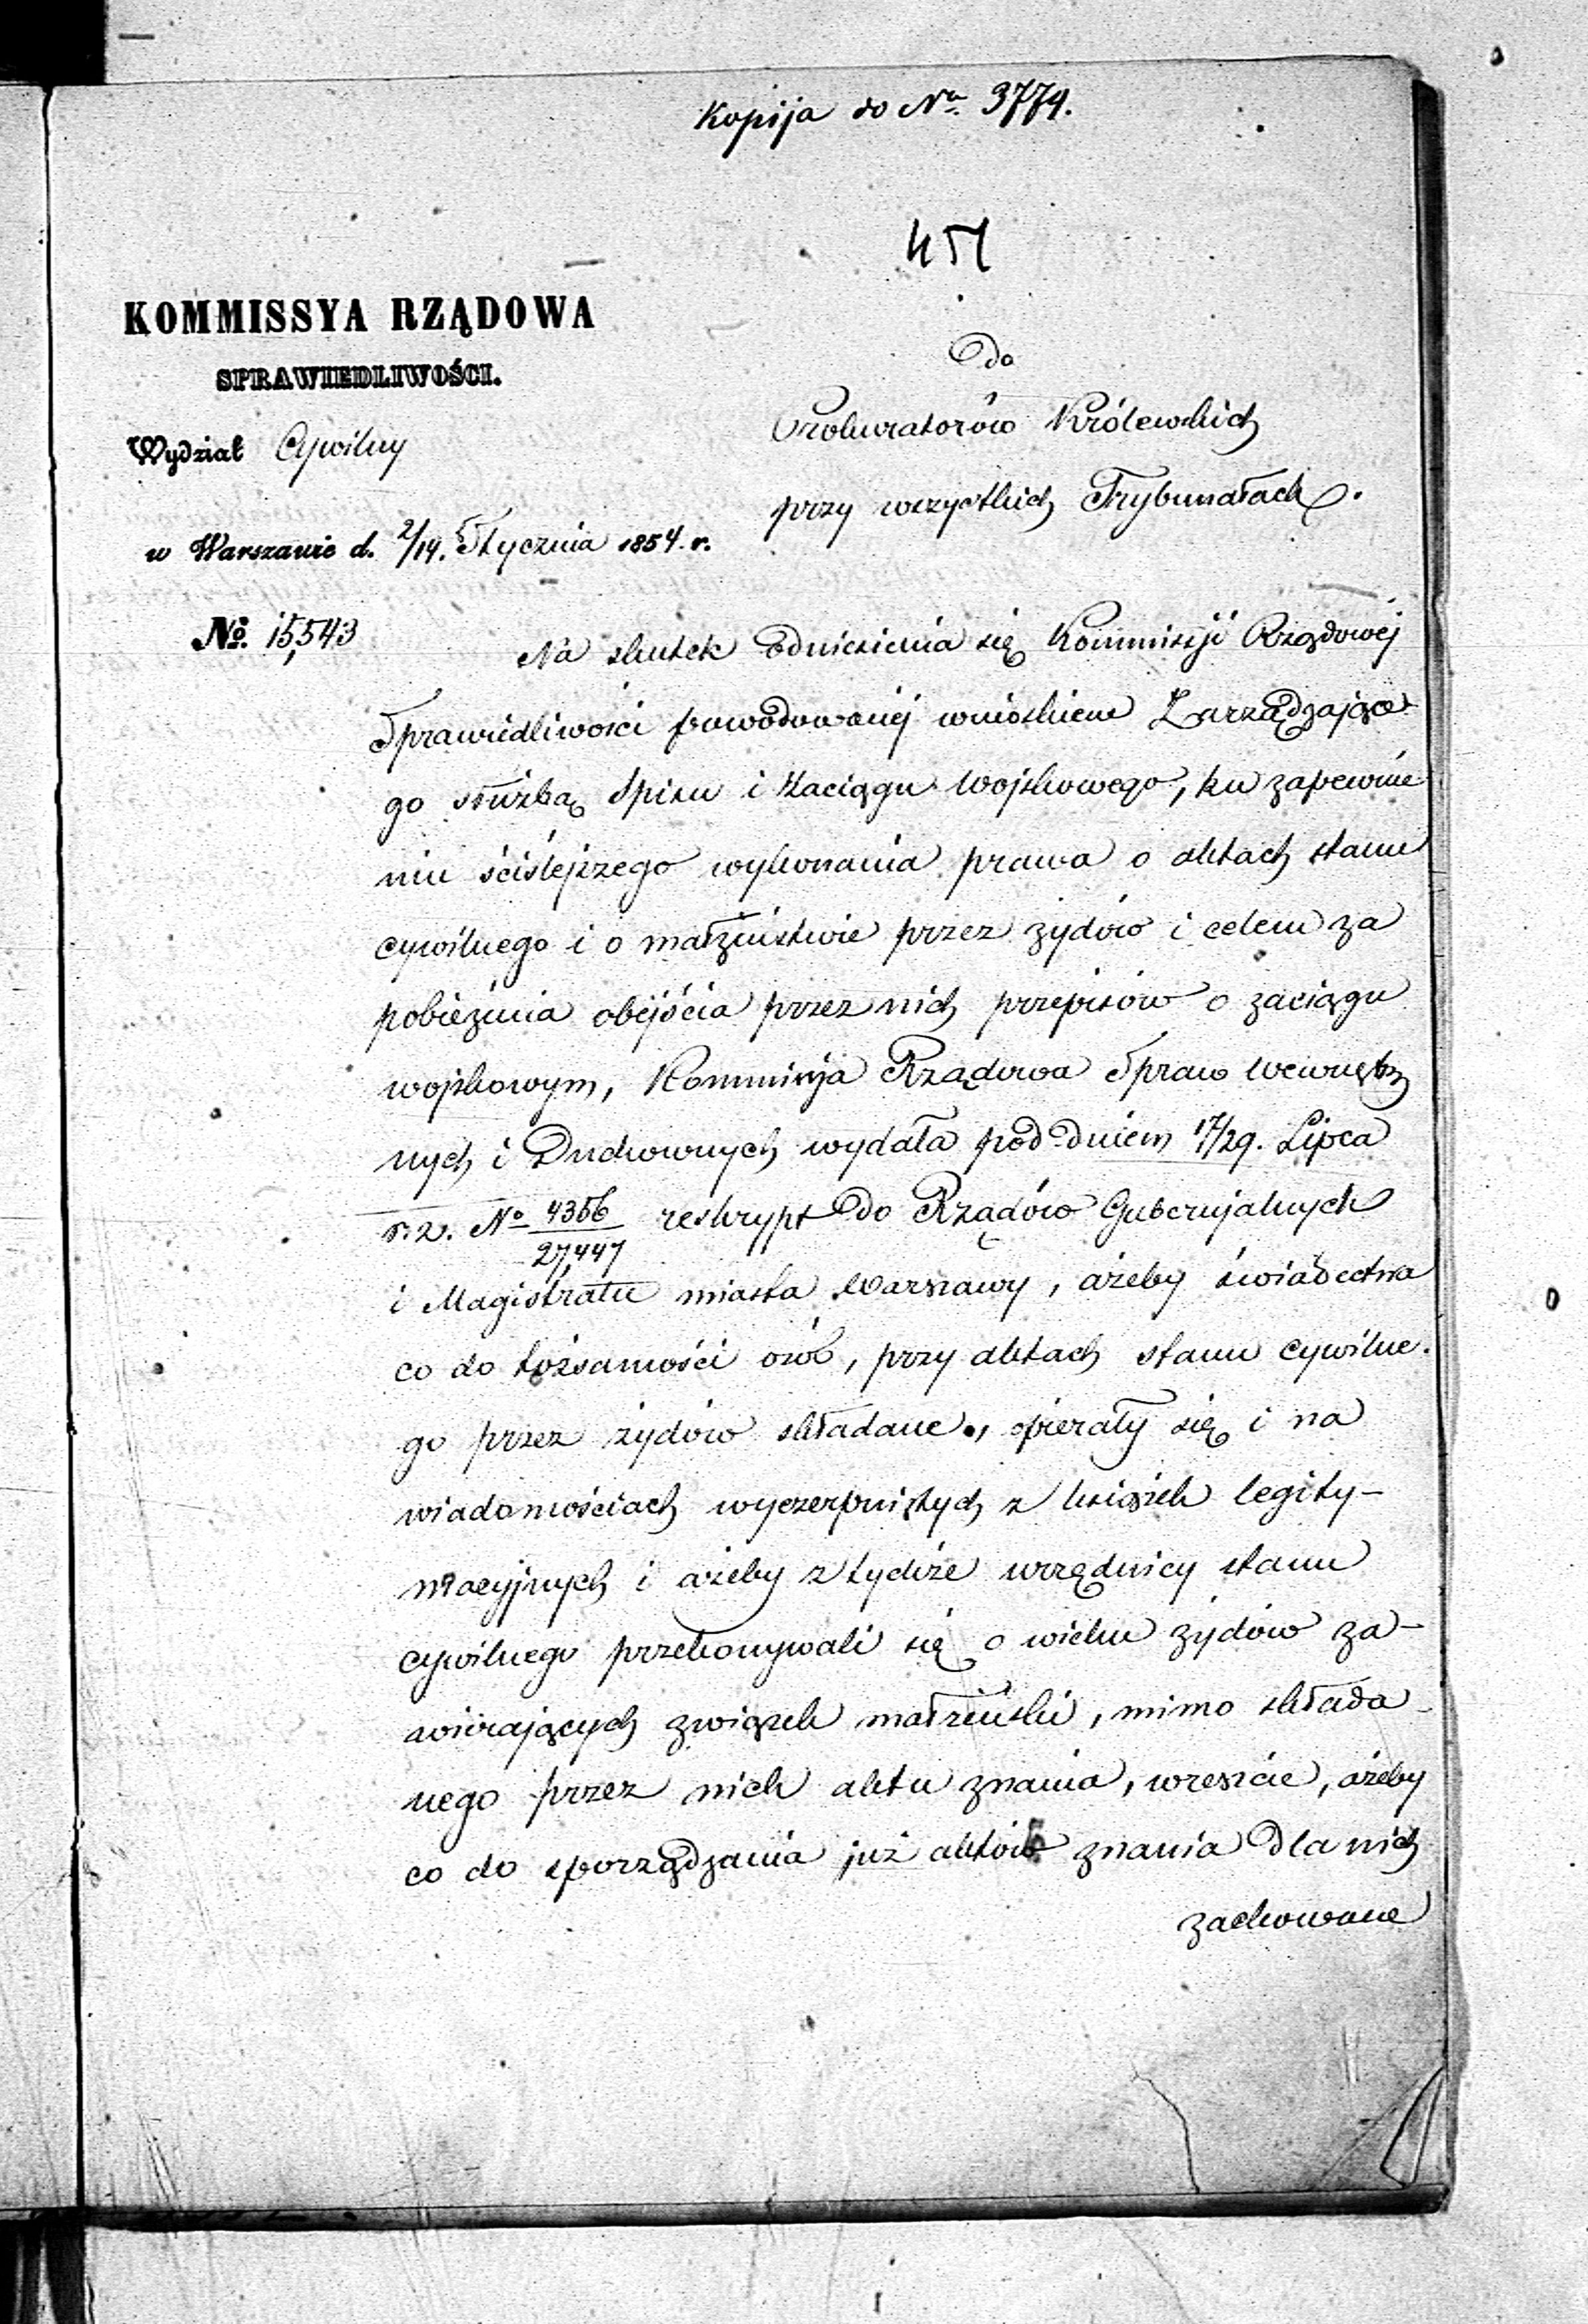 Kopija do Nru 3774.
451
KOMMISSYA RZĄDOWA
SPRAWIEDLIWOŚCI.
Wydział Cywilny
w Warszawie d. 2/14. Stycznia 1854. r.
No. 15,543
Do
Prokuratorów Królewskich
przy wszystkich Trybunałach.
Na skutek odniesienia się Kommissji Rządowej
Sprawiedliwości powodowanej wnioskiem Zarządzające-
go służbą Spisu i Zaciągu Wojskowego, ku zapewnie
niu ściślejszego wykonania prawa o aktach stanu
cywilnego i o małżeństwie przez żydów i celem za
pobieżenia obejścia przez nich przepisów o zaciągu
wojskowym, Kommissja Rządowa Spraw Wewnętrz
nych i Duchownych wydała pod dniem 17/29. Lipca
r. z. No 4356/27,447 reskrypt do Rządów Gubernjalnych
i Magistratu miasta Warszawy, ażeby świadectwa
co do tożsamości osób, przy aktach stanu cywilne.
go przez żydów składane, opierały się i na
wiadomościach wyczerpniętych z książek legity-
macyjnych i ażeby z tychże urzędnicy stanu
cywilnego przekonywali się o wieku żydów za-
wierających związek małżeński, mimo składa-
nego przez nich aktu znania, wreszcie, ażeby
co do sporządzania już aktów znania dla nich
zachowane